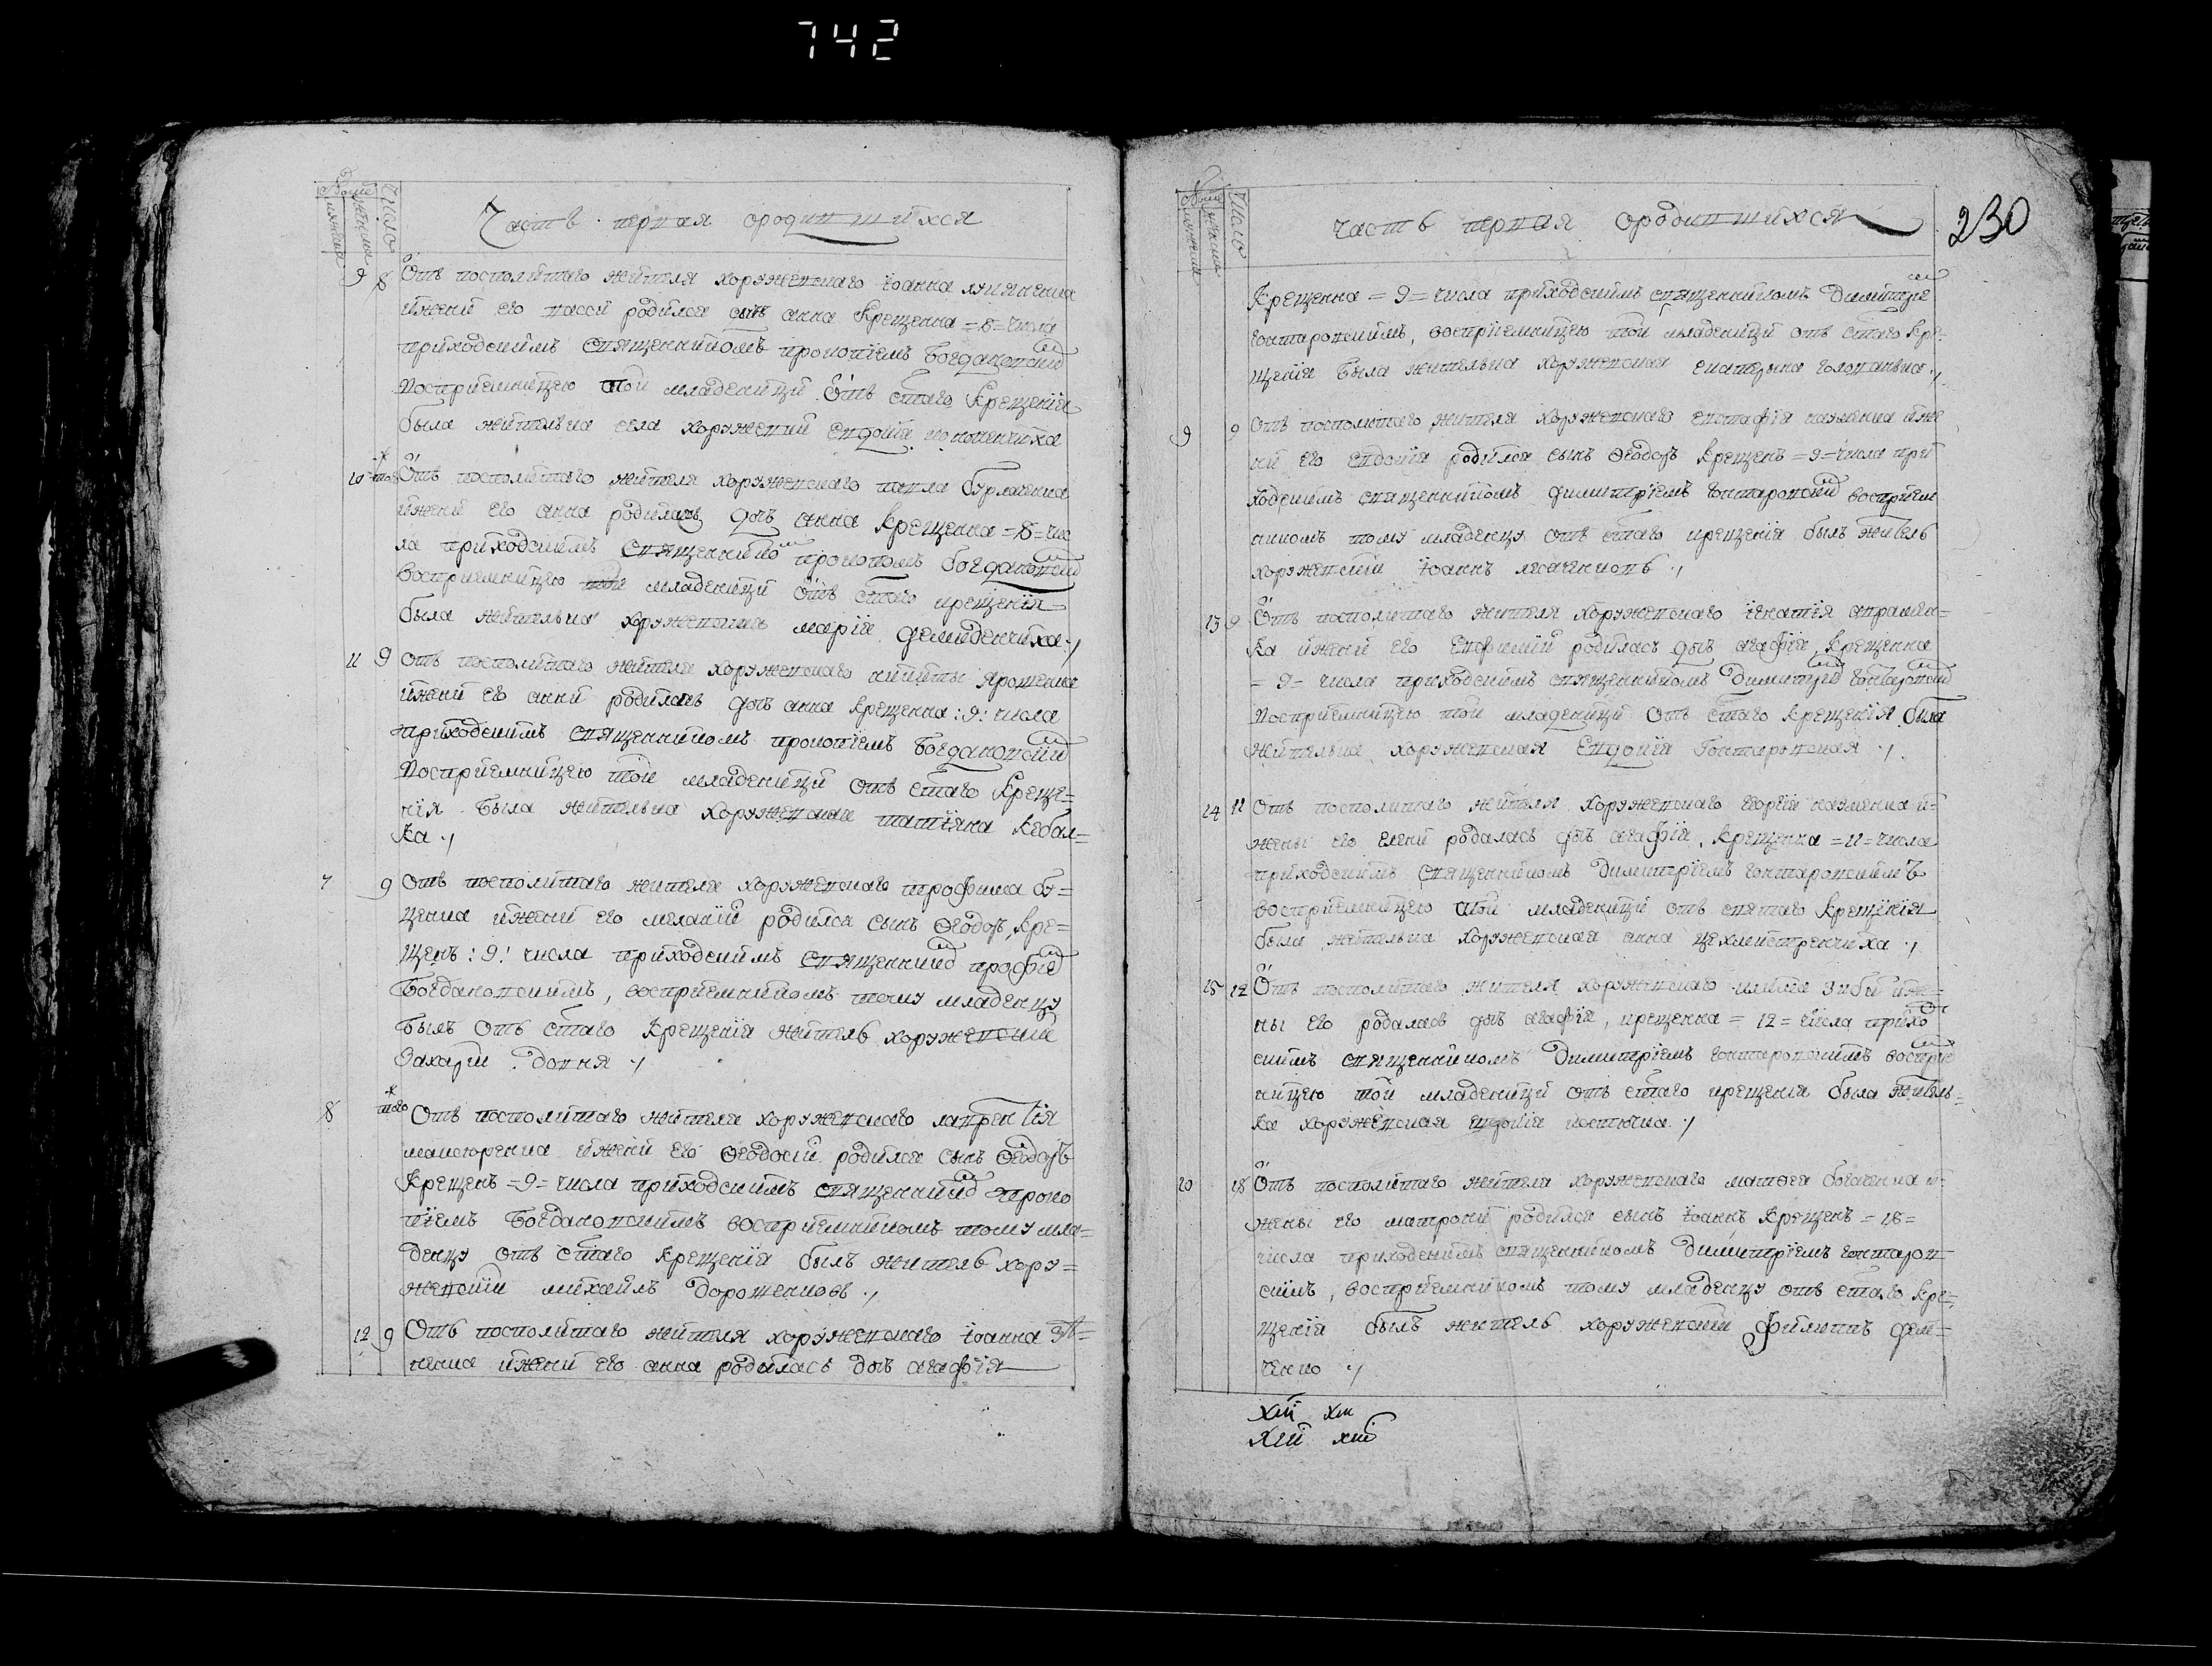 742
Число
Часть первая ородившихся
9 8 Отъ посполитаго жителя хоружевскаго Іоанна
ижени его васси родился сынъ анна крещенна =8= числа
приходскимъ священникомъ прокопіемъ Богдановским
Восприемницею той младеницы Отъ стаго Крещенія
была жителька села хоружевки Евдокія
10 того Отъ посполитаго жителя хоружевскаго павла бурлаченка
ижени его анна родилась дочь анна крещенна =8= чис
ла приходскимъ священником прокопомъ богдановским
восприемницею той младеницы отъ стаго крещенія
была жителька хоружевская марія демиденчиха ./
11 9 Отъ посполитаго жителя хоружевскаго никиты ярошенка
ижени его анни родилась дочь анна крещенна :9: числа
приходскимъ священникомъ прокопіемъ Богдановским
Восприемницею той младеницы отъ стаго Креще=
нія была жителька хоружевская татіяна кебал=
ка ./
7 9 Отъ посполитаго жителя хоружевскаго трофима бу=
ценка ижени его меланіи родился сынъ Ѳеодоръ, кре=
щенъ :9: числа приходскимъ священником
Богдановскимъ, восприемникомъ тому младенцу
былъ Отъ стаго Крещенія житель хоружевский
Захарій довня ./
8 того Отъ посполитаго жителя хоружевскаго лаврентія
ижени его Ѳеодосіи родился сынъ Ѳеодоръ
Крещенъ =9= числа приходскимъ священником проко
піемъ Богдановскимъ восприемникомъ тому мла=
денцу отъ стаго крещенія былъ житель хору=
жевскій михаилъ дорошенковъ ./
12 9 Отъ посполитаго жителя хоружевскаго Іоанна
ижени его анна родилась дочь агафія
Число
часть первая ородившихся
230
Крещенна =9= числа приходскимъ священникомъ Димитрие
гонтаровскимъ, восприемницею той младеницы отъ стаго кре=
щенія была жителька хоружевская екатерына ./
9 9 Отъ посполитаго жителя хоружевскаго евстафія науменка иже
ни его евдокія родился сынъ Ѳеодоръ крещенъ =9= числа при
ходскимъ священникомъ димитріемъ гонтаровским восприем
никомъ тому младенцу отъ стаго крещенія былъ житель
хоружевскій Іоаннъ ./
13 9 Отъ посполитаго жителя хоружевскаго ігнатія
ка ижени его Евфиміи родилась дочь агафія, крещенна
=9= числа приходскимъ священникомъ Димитрием гонтаровским
Восприемницею той младеницы отъ стаго крещенія была
жителька хоружевская Евдокія Гонтаровская ./
14 11 Отъ посполитаго жителя хоружевскаго георгія науменка и=
жены его елени родалась дочь агафія, крещенна =11= числа
приходскимъ священникомъ Димитріемъ гонтаровскимъ
восприемницею той младеницы отъ святаго крещенія
была жителька хоружевская анна цехмистренчиха ./
15 12 Отъ посполитаго жителя хоружевскаго иже=
ны его родалась дочь агафія, крещенна =12= числа прихо
скимъ священникомъ Димитріемъ гонтаровскимъ восприе
ницею той младеницы отъ стаго крещенія была житель=
ка хоружевская ./
10 18 Отъ посполитаго жителя хоружевскаго матѳея богаченка и=
жены его матрони родился сынъ Іоаннъ Крещенъ =18=
числа приходскимъ священникомъ Димитріемъ гонтаров
скимъ, восприемникомъ тому младенцу отъ стаго кре=
щенія былъ житель хоружевскій филиппъ дем=
ченко ./